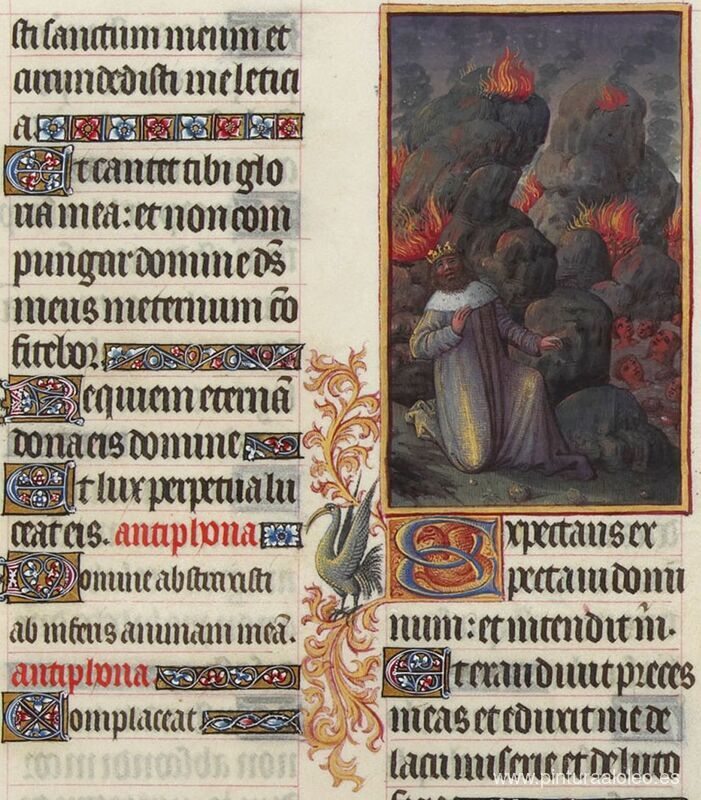 sti sanctum meum et
circundedisti me letici
a
Et cantet tibi glo
ria mea: et non com
pungar domine ds̄
meus in eternum cō
fitebor
Requiem eternā
dona eis domine
Et lux perpetua lu
ceat eis. antiphona
Domine abstraxisti
ab inferis animam meā.
antiphona
Complaceat
Expectans ex
pectaui domi
num: et intendit m̄.
Et exaudiuit preces
meas et eduxit me de
lacu miserie et de luto
www.pinturaaloleo.es